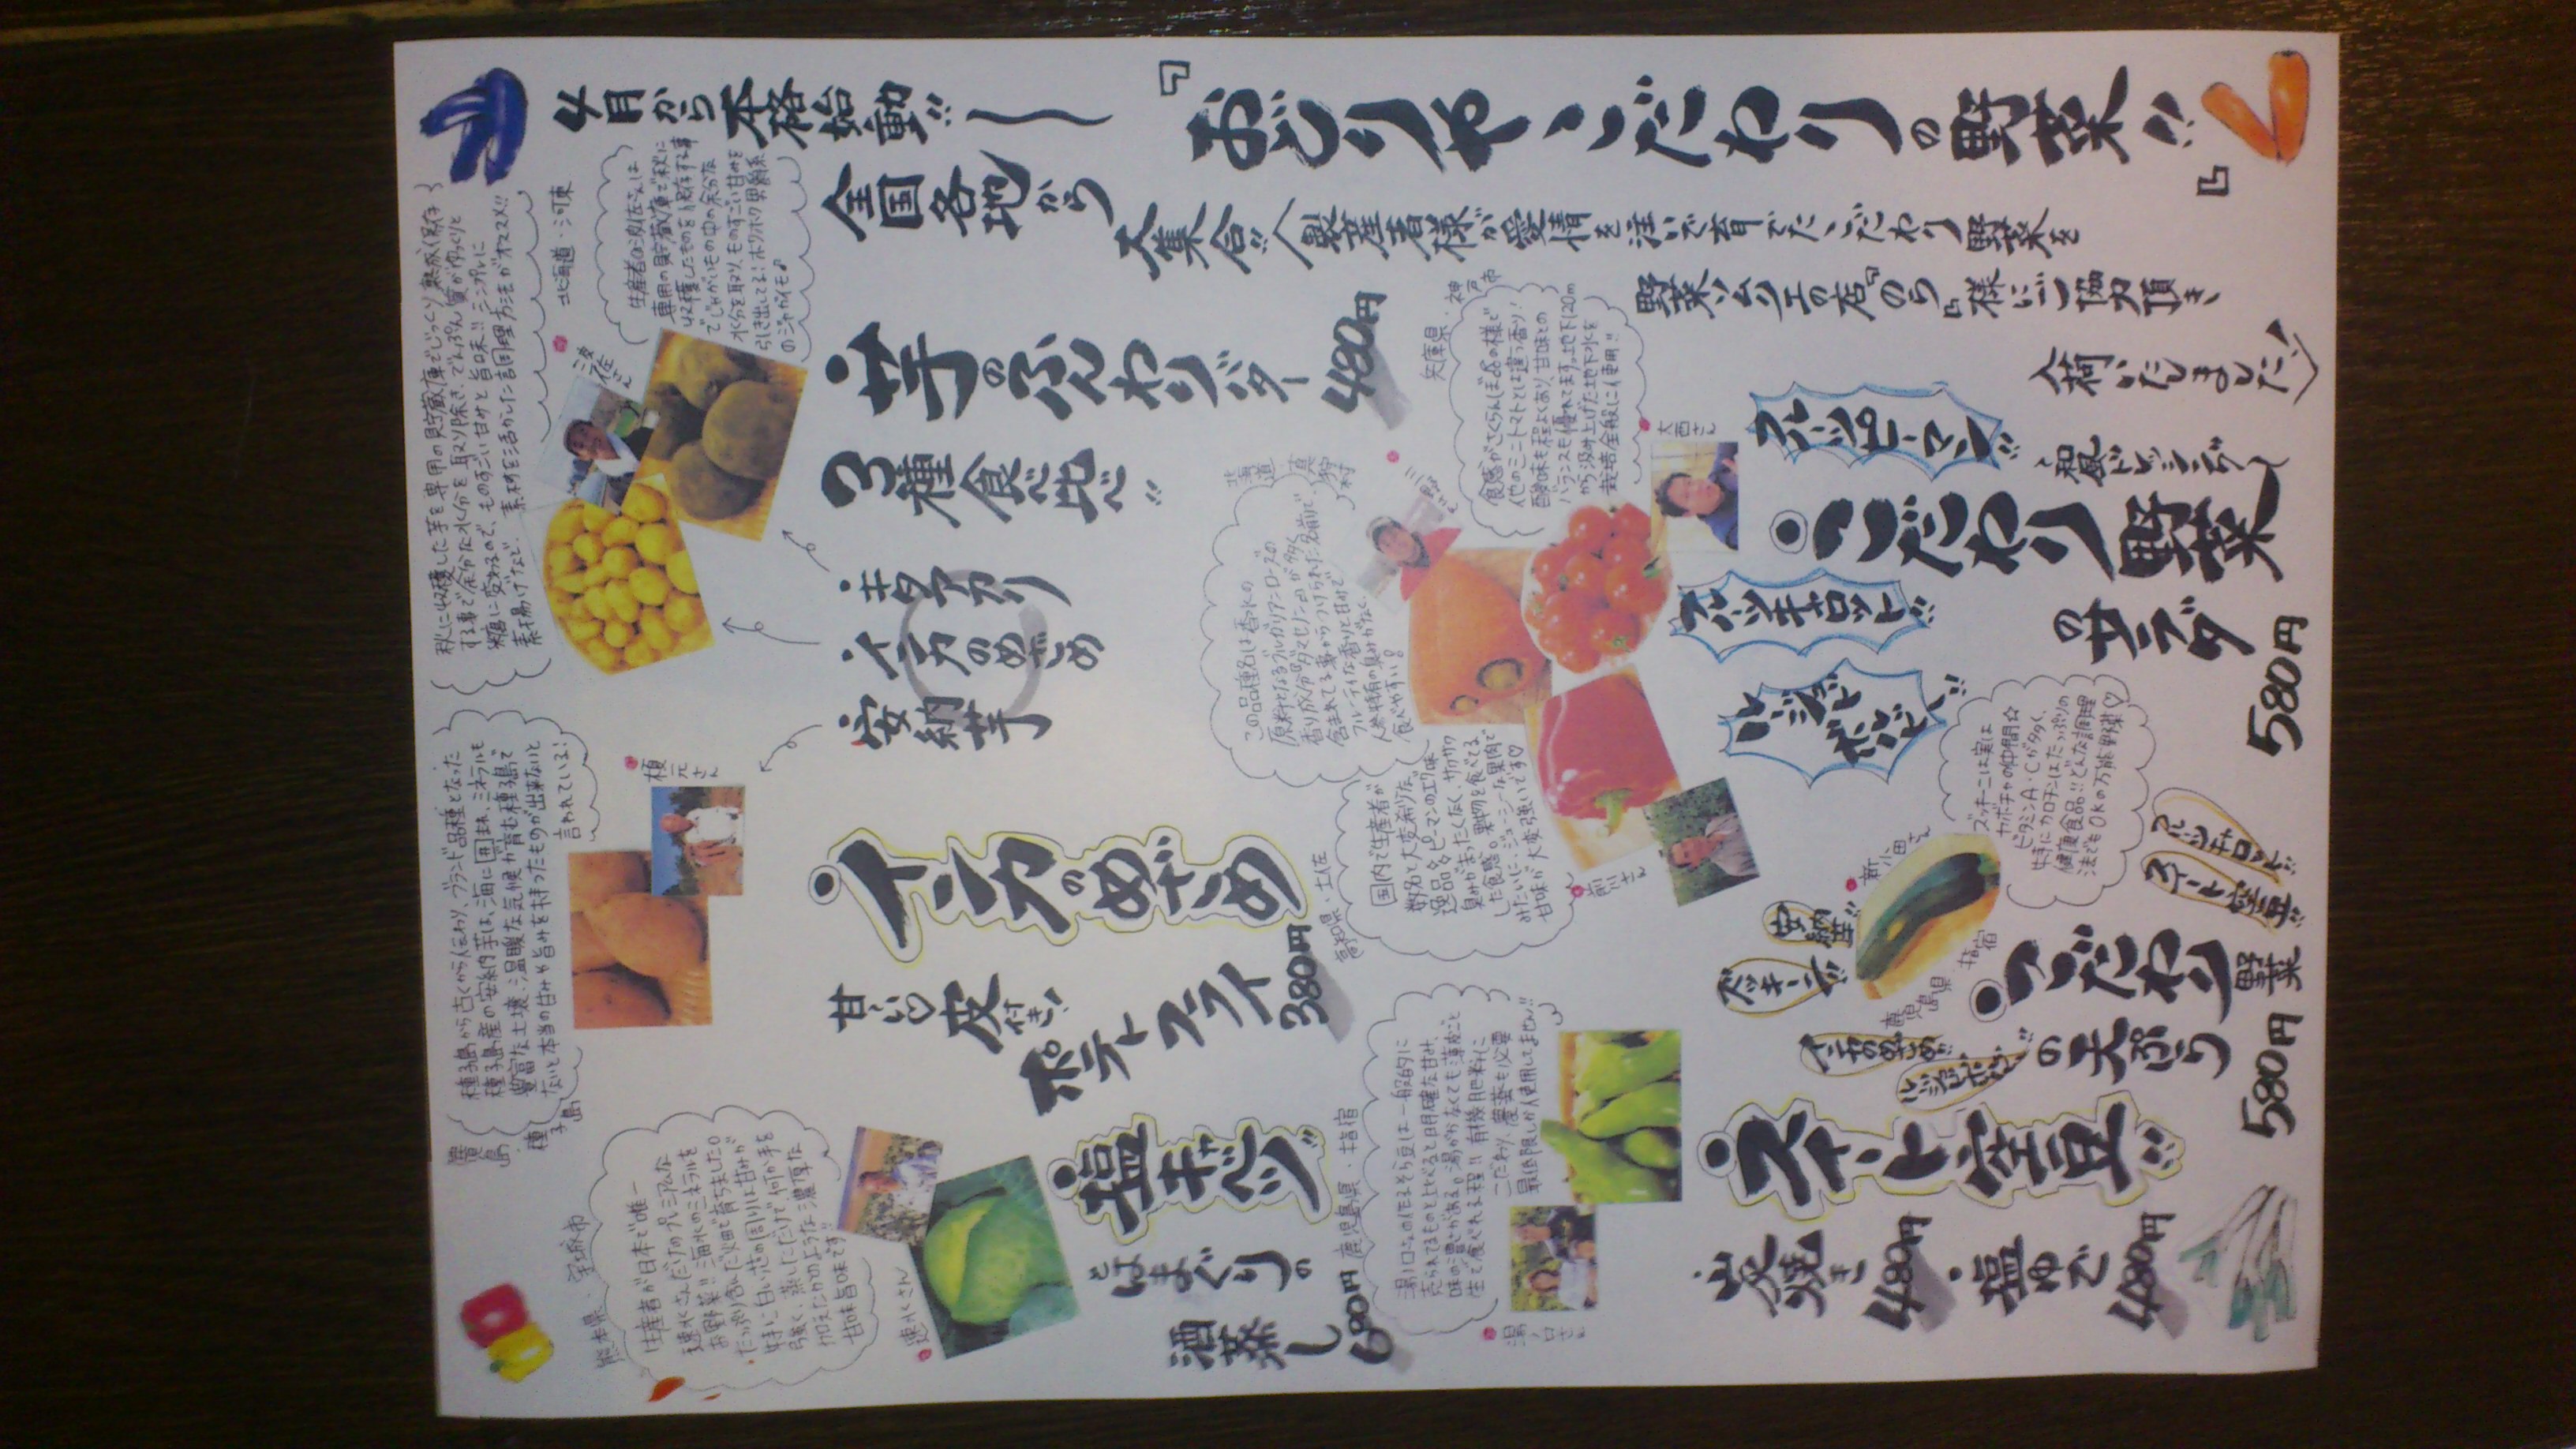 『おどりや こだわりの野菜!!』
4月から本格始動!!〜
全国各地から
大集合!!
生産者様が愛情を注いで育てたこだわり野菜を
野菜ソムリエの店『のら』様にご協力頂き、
入荷いたしました!
フルーツピーマン!!
〜和風ドレッシング〜
こだわり野菜
のサラダ
580円
フルーツキャロット!!
ルージュドボルドー!!
兵庫県・神戸市
食感がさくらんぼの様で
他のミニトマトとは違う香り!
酸味も程よくあり、甘味との
バランスも優れてます。地下120m
から汲み上げた地下水を
栽培全般に使用!!
大西さん
北海道・真狩村
この品種名は香水の
原料となるブルガリアンローズの
香り成分『ダマセノン』が多く
含まれてる事からつけられた名前で、
フルーティな香りと甘さで
人参特有の臭みがなく、
食べやすい!
三野さん
国内で生産者が
数名と大変希少な
逸品◇ピーマンのエグ味
臭みがまったくなく、サクサク
した食感。果物を食べてる
みたいに、ジューシーな果肉で
甘味が大変強いです♡
高知県・土佐
前川さん
ズッキーニは実は
カボチャの仲間☆
ビタミンA・Cが多く、
特にカロテンはたっぷりの
健康食品!!どんな調理
法でもOKの万能野菜♡
新小田さん
鹿児島県・指宿
フルーツキャロット!!
スイート空豆!!
安納芋!!
ズッキーニ!!
インカのめざめ!!
ルージュドボルドー!!
こだわり野菜
の天ぷら
580円
スイート空豆!!
炭焼き
480円
・塩ゆで
480円
湯ノ口さんの作るそら豆は一般的に
売られてるものと比べると明確な甘み、
味の濃さがある。湯がかなくても薄皮ごと
生で食べれる程!!有機肥料に
こだわり、農薬も必要
最低限しか使用してません!!
鹿児島県・指宿
湯ノ口さん
芋のふんわりバター
480円
3種食べ比べ!!
・キタアカリ
・インカのめざめ
・安納芋
北海道・河東
生産者の渡辺さんは
専用の貯蔵庫で秋に
収穫したものを保存する事
でじゃがいもの中の余分な
水分を取り、ものすごい甘みを
引き出してる!ホクホク男爵系
のジャガイモ♪
渡辺さん
秋に収穫した芋を専用の貯蔵庫でじっくり熟成保存
する事で余分な水分を取り除き、でんぷん質がゆっくりと
糖に変わるので、ものすごい甘さと旨味!!シンプルに
素揚げなど、素材を活かした調理方法がオススメ!!
種子島から古くから伝わり、ブランド品種となった
種子島産の安納芋は、海に囲まれ、ミネラルも
豊富な土壌・温暖な気候が育む種子島で
ないと本当の甘みや旨みを持ったものが出来ないと
言われている!
榎元さん
鹿児島・種子島
インカのめざめ
甘〜い♡皮付き!
ポテトフライ
380円
塩キャベツ
とはまぐりの
酒蒸し
680円
熊本県・宇城市
生産者が日本で唯一
速水さんだけのプレミアムな
お野菜!!海水のミネラルを
たっぷり含んだ畑で育ちました。
特に白い芯の周りは甘みが
強く、蒸しただけで、何か手を
加えたかのような濃厚な
甘味旨味です!!
速水さん